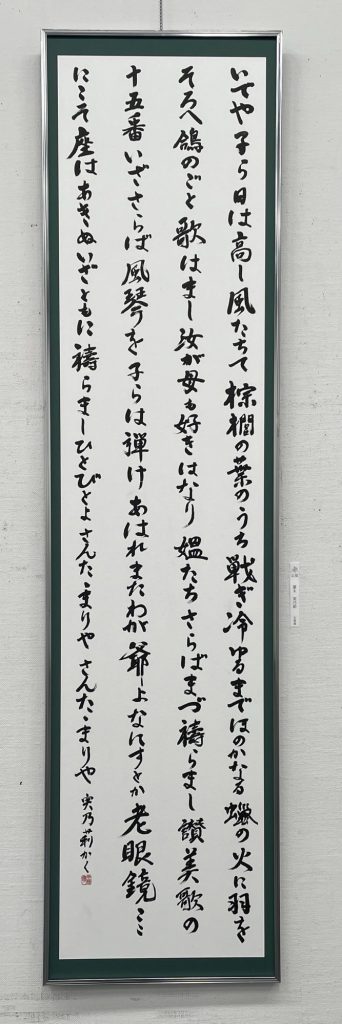 いでや子ら日は高し風たちて棕櫚の葉のうち戦ぎ冷ゆるまでほのかなる蠟の火に羽を
そろへ鴿のごと歌はまし汝が母も好きはなり媼たちさらばまづ禱らまし讃美歌の
十五番いざさらば風琴を子らは弾けあはれまたわが爺よなにすとか老眼鏡ここ
にこそ座はあきぬいざともに禱らましひとびとよさんた・まりやさんた・まりや 実乃莉かく